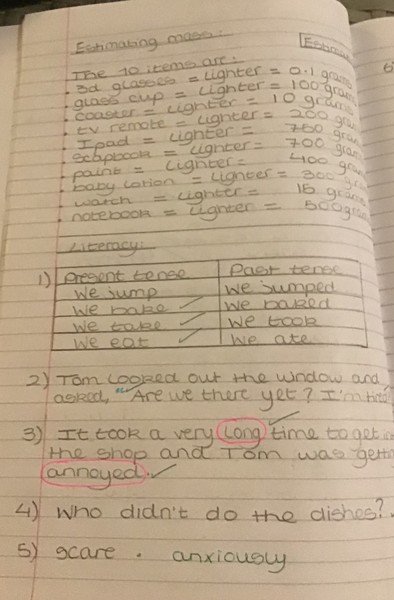 Estimating mass:
The 10 items are:
. 3d glasses = Lighter = 0.1 grams
. glass cup = Lighter = 100 grams
. coaster = Lighter = 10 grams
. tv remote = Lighter = 200 gram
. Ipad = Lighter = 750 gram
. scapbook = Lighter = 700 gram
. paint = Lighter = 400 gram
. baby lotion = Lighter = 300 gram
. watch = Lighter = 15 grams
. notebook = Lighter = 500gram
Literacy:
1) Present tense Past tense
We jump We jumped
We bake We baked
We take We took
We eat We ate
2) Tom looked out the window and
asked, "Are we there yet? I'm
3) It took a very long time to get
the shop and Tom was
annoyed.
4) Who didn't do the dishes?
5) scare . anxiously